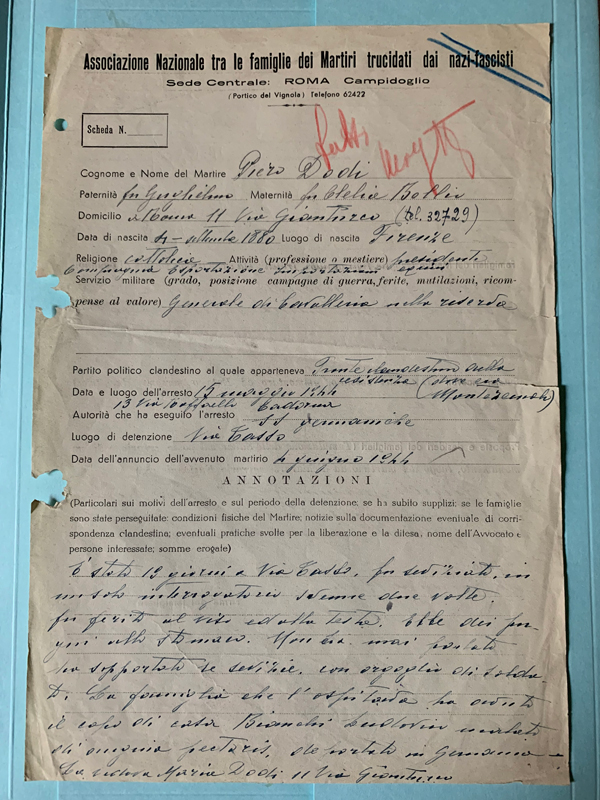 Associazione Nazionale tra le famiglie dei Martiri trucidati dai nazi-fascisti
Sede Centrale: ROMA Campidoglio
(Portico del Vignola) Telefono 62422
Scheda N.
Cognome e Nome del Martire Piero Dodi
Paternità fu Guglielmo Maternità fu Clelia
Domicilio Roma 11 Via Gianturco (tel. 32729)
Data di nascita settembre 1880 Luogo di nascita Firenze
Religione cattolica Attività (professione o mestiere) presidente
Compagnia Esportazione importazioni equini
Servizio militare (grado, posizione campagne di guerra, ferite, mutilazioni, ricom-
pense al valore) Generale di Cavalleria nella riserva
Partito politico clandestino al quale apparteneva Fronte clandestino della
resistenza (dove era
Data e luogo dell'arresto 15 maggio 1944 Montezemolo)
13 Via Raffaele Cadorna
Autorità che ha eseguito l'arresto SS germaniche
Luogo di detenzione Via Tasso
Data dell'annuncio dell'avvenuto martirio 4 giugno 1944
ANNOTAZIONI
(Particolari sui motivi dell'arresto e sul periodo della detenzione; se ha subito supplizi; se le famiglie
sono state perseguitate: condizioni fisiche del Martire; notizie sulla documentazione eventuale di corri-
spondenza clandestina; eventuali pratiche svolte per la liberazione e la difesa; nome dell'Avvocato e
persone interessate; somme erogate)
È stato 19 giorni a Via Tasso, fu seviziato, in
un solo interrogatorio svenne due volte,
fu ferito al viso ed alla testa. Ebbe dei pu-
gni allo stomaco. Non ha mai parlato
ha sopportato le sevizie con orgoglio di solda-
to. La famiglia che l'ospitava ha avuto
il capo di casa Bianchi Ludovico malato
di angina pectoris, deportato in Germania
La vedova Maria Dodi 11 Via Gianturco